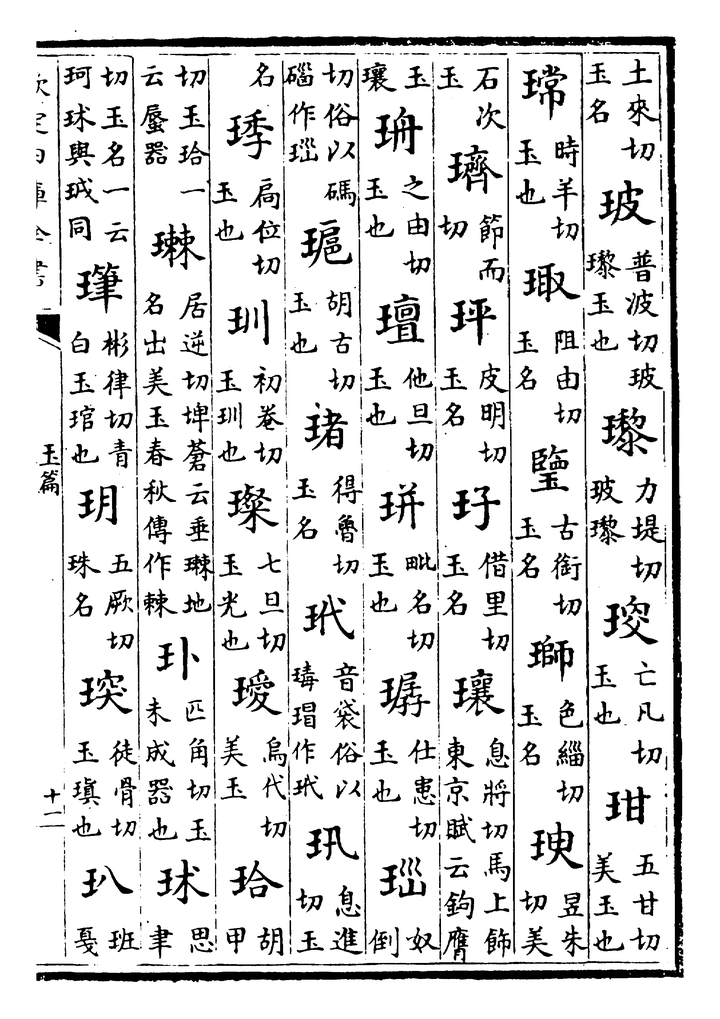 土來切玉名 玻 普波切玻瓈玉也 瓈 力堤切玻瓈 亡凡切玉也 玵 五甘切美玉也
瑺 時羊切玉也 阻由切玉名 古銜切玉名 瑡 色緇切玉名 昱朱切美
石次玉 璾 節而切 玶 皮明切玉名 借里切玉名 瓖 息將切馬上飾東京賦云鉤膺
玉瓖 珘 之由切玉也 璮 他旦切玉也 毗名切玉也 仕恚切玉也 奴倒
切俗以碼碯作 胡古切玉也 得魯切玉名 玳 音袋俗以瑇瑁作玳 息進切玉
名 扃位切玉也 玔 初卷切玉玔也 璨 七旦切玉光也 璦 烏代切美玉 珨 胡甲
切玉珨一云蜃器 居逆切埤蒼云垂地名出美玉春秋傳作棘 匹角切玉未成器也 球 思聿
切玉名一云珂球與珬同 彬律切青白玉琯也 玥 五厥切珠名 徒骨切玉瑱也 玐 班戛
欽定四庫全書
玉篇
十二